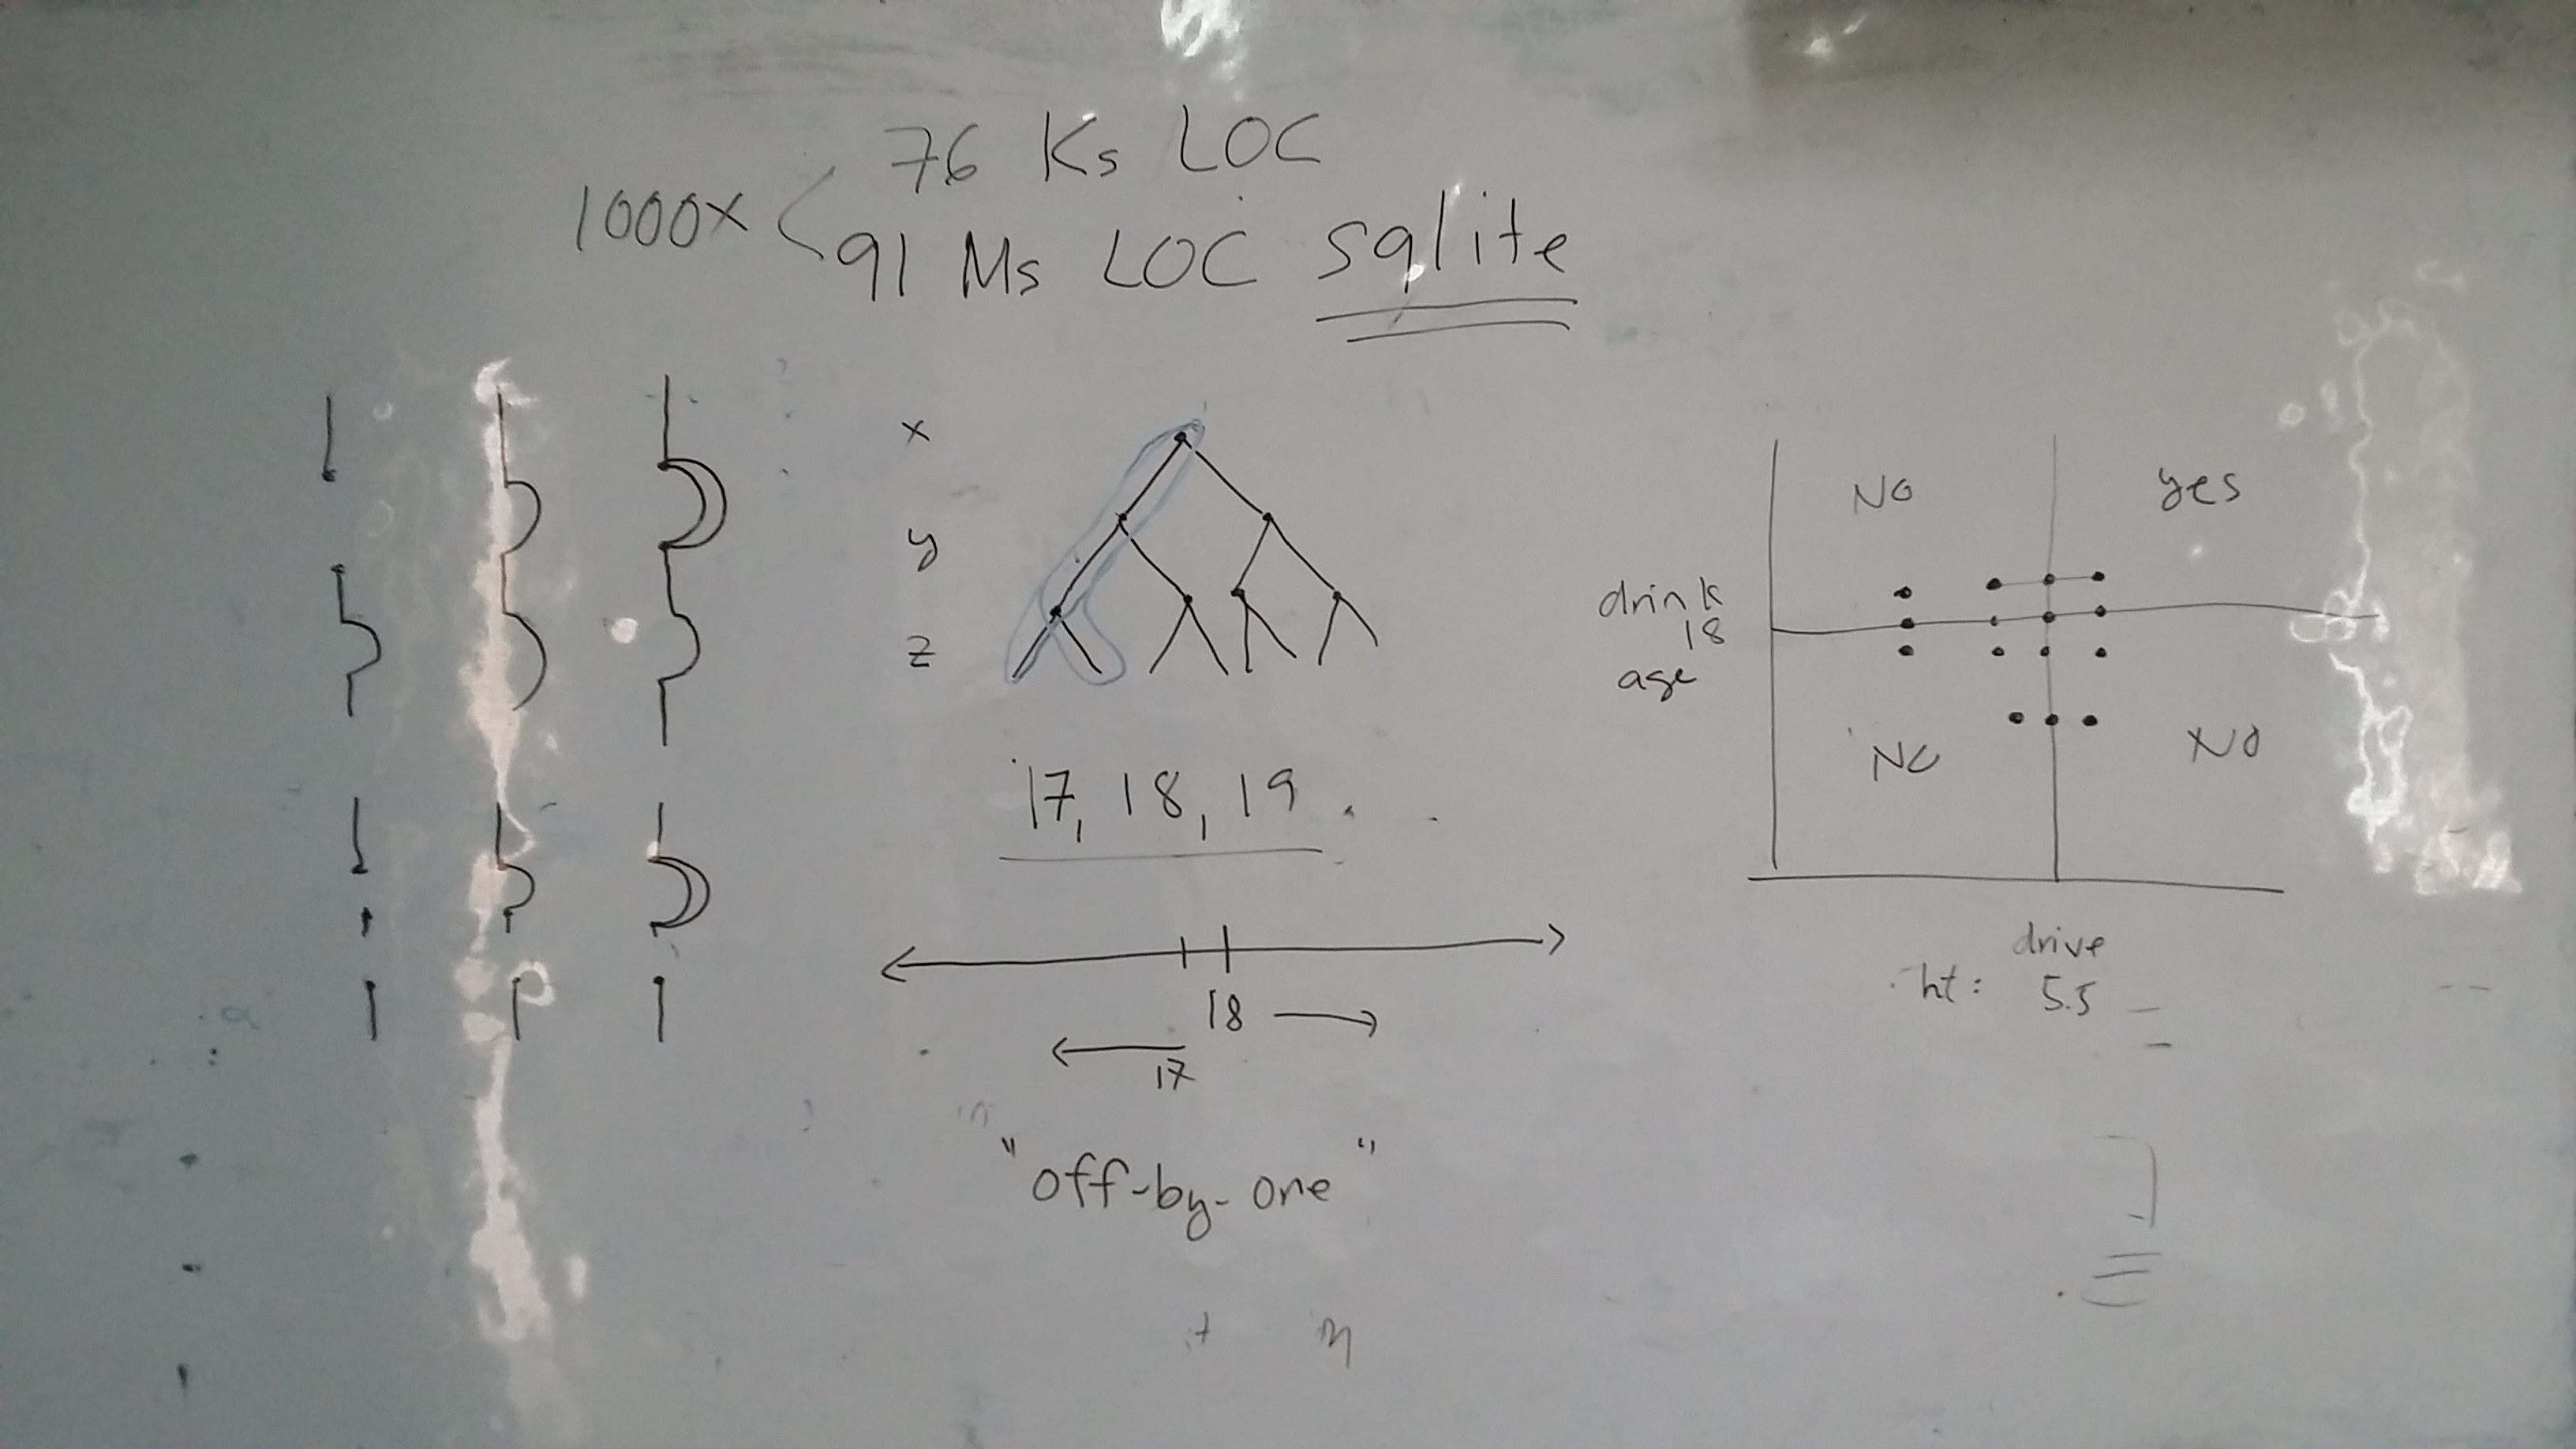 76 Ks LOC
1000x
91 Ms LOC sqlite
x
y
z
17, 18, 19
18
17
"off-by-one"
NO
yes
drink
18
age
NO
NO
drive
ht: 5.5